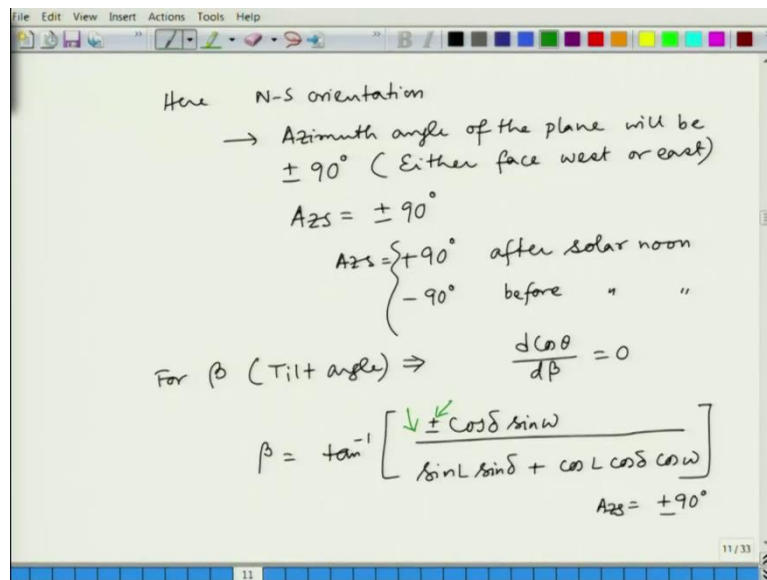 File Edit View Insert Actions Tools Help
B I
Here N-S orientation
→ Azimuth angle of the plane will be
± 90° (Either face west or east)
Azs = ± 90°
Azs = { +90° after solar noon
- 90° before " "
For β (Tilt angle) ⇒ dcosθ/dβ = 0
β = tan⁻¹ [ ± cosδ sinω / sinL sinδ + cosL cosδ cosω ]
Azs = ±90°
11/33
11